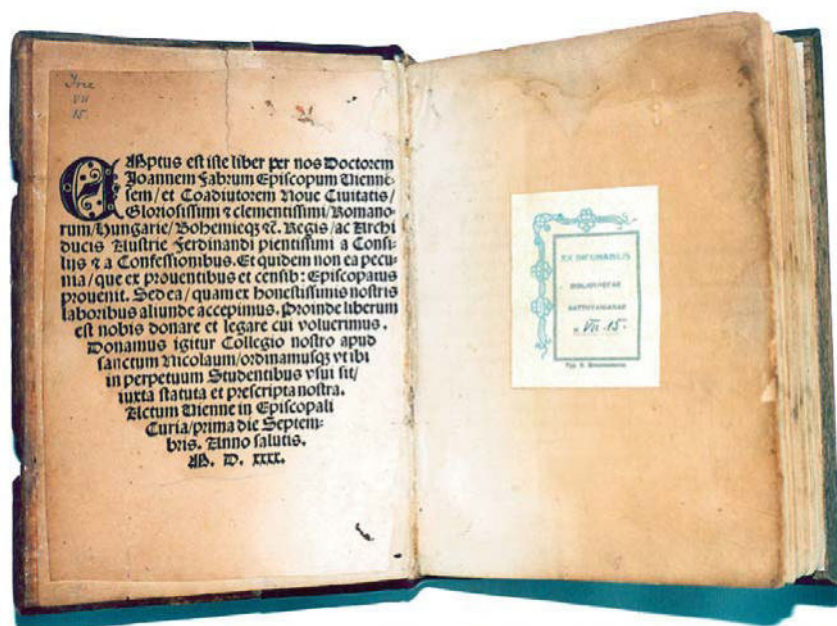 Inc
VII
15.
EMptus est iste liber per nos Doctorem
Joannem Fabrum Episcopum Vienne-
sem/et Coadiutorem Noue Ciuitatis/
Gloriosissimi ⁊ clementissimi/Romano-
rum/Hungarie/Bohemieqꝫ ⁊c. Regis/ac Archi
ducis Austrie Ferdinandi pientissimi a Consi-
lijs ⁊ a Confessionibus. Et quidem non ea pecu-
nia/que ex prouentibus et censib: Episcopatus
prouenit. Sed ea/quam ex honestissimis nostris
laboribus aliunde accepimus. Proinde liberum
est nobis donare et legare cui voluerimus.
Donamus igitur Collegio nostro apud
sanctum Nicolaum/ordinamusqꝫ vt ibi
in perpetuum Studentibus vsui sit/
iuxta statuta et prescripta nostra.
Actum Vienne in Episcopali
Curia/prima die Septem-
bris. Anno salutis.
M. D. XXXX.
EX INCUNABULIS
BIBLIOTHECAE
BATTHYANIANAE
VII. 15.